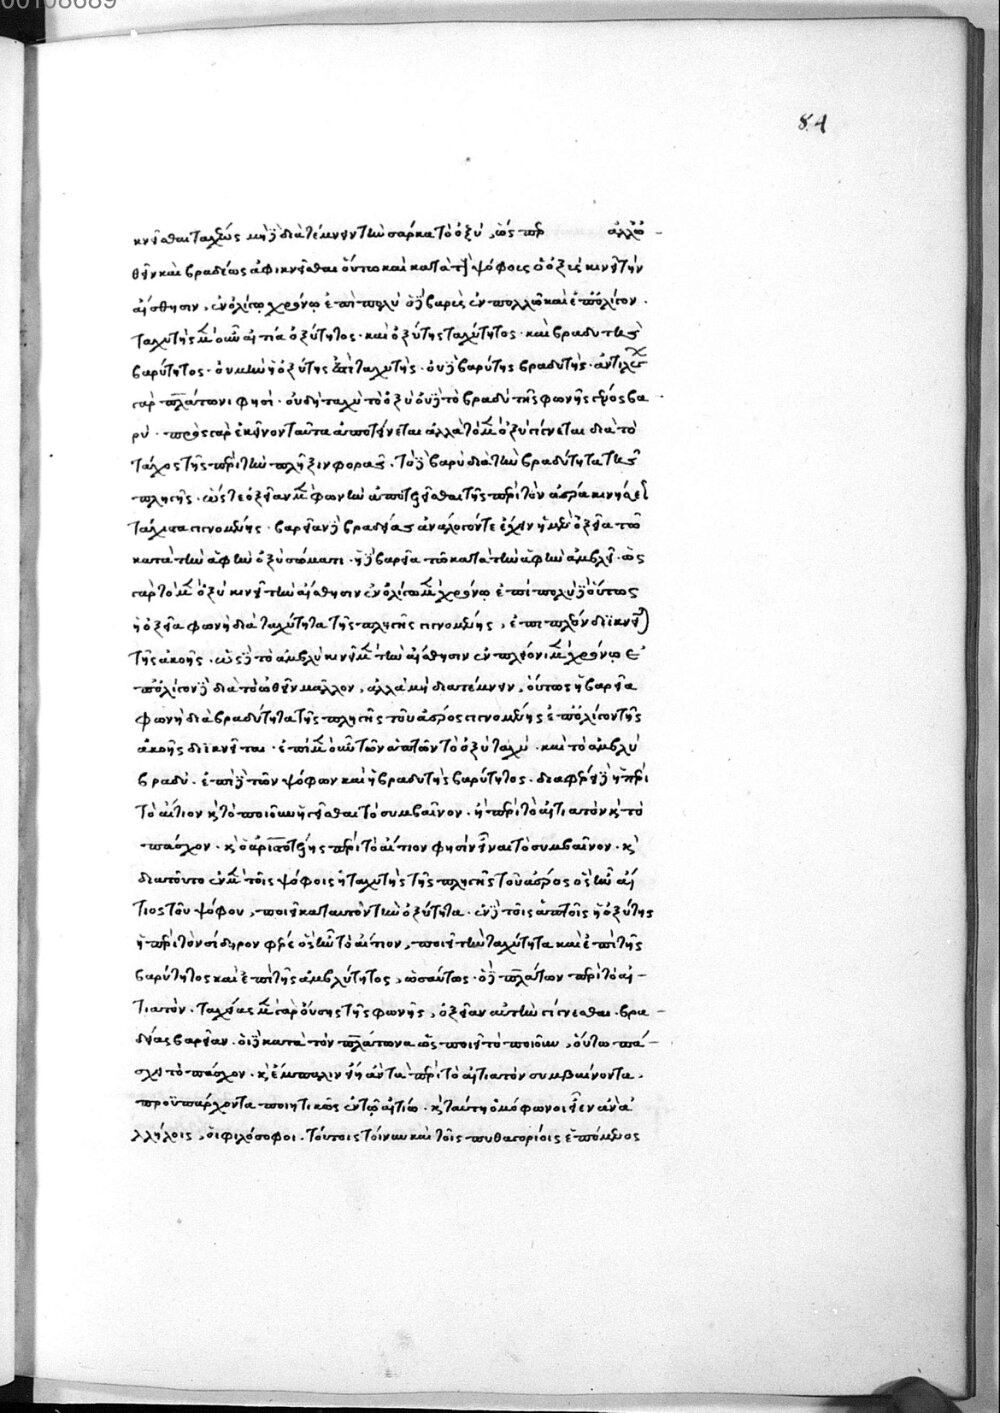 84
κνεῖσθαι ταχέως μὴ δὲ διατέμνειν τὴν σάρκα τὸ ὀξὺ, ὡς περ ἀλλ᾽ ὠ
θεῖν καὶ βραδέως ἀφικνεῖσθαι οὕτω καὶ κατὰ τ ψόφοις ὁ ὀξὺς κινεῖ τὴν
αἴσθησιν, ἐν ὀλίγῳ χρόνῳ ἐπὶ πολὺ ὁ δὲ βαρὺς ἐν πολλῶ καὶ ἐπ᾽ ὀλίγον.
ταχυτὴς μὲν οὖν αἰτία ὀξύτητος. καὶ ὀξύτης ταχύτητος. καὶ βραδυτὴς
βαρύτητος. οὐ μὴν ἡ ὀξύτης ταχυτής. οὐ δὲ βαρύτης βραδυτής. ἀντιλέγει
γὰρ πλάτωνι φησὶ. οὐ δὴ ταχὺ τὸ ὀξὺ οὐ δὲ τὸ βραδὺ τῆς φωνῆς βα
ρύ. πρὸς γὰρ ἐκεῖνον ταῦτα ἀποτείνεται ἀλλὰ τὸ μὲν ὀξὺ γίνεται διὰ τὸ
τάχος τῆς περὶ τὴν πλῆξιν φορᾶς. τὸ δὲ βαρὺ διὰ τὴν βραδύτητα τῆς
πληγῆς. ὥστε ὀξεῖαν μὲν φωνὴν ἀποτελεῖσθαι τῆς περὶ τὸν ἀέρα κινήσεως
ταχίστα γινομένης. βαρεῖαν δὲ βραδείας ἀναλογόν τε ἔχειν ἡ μὲν ὀξεῖα τῶ
κατὰ τὴν ἁφὴν ὀξὺ σώματι. ἡ δὲ βαρεῖα τῶ κατὰ τὴν ἁφὴν ἀμβλεῖ. ὡς
γὰρ τὸ μὲν ὀξὺ κινεῖ τὴν αἴσθησιν ἐν ὀλίγω μὲν χρόνῳ ἐπὶ πολὺ δὲ οὕτως
ἡ ὀξεῖα φωνὴ διὰ ταχύτητα τῆς πληγῆς γινομένης, ἐπι πλέον διϊκνεῖται
τῆς ἀκοῆς. ὡς δὲ τὸ ἀμβλὺ κινεῖ μὲν τὴν αἴσθησιν ἐν πλείονι μὲν χρόνῳ
ἐπ᾽ ὀλίγον δὲ διὰ τὸ ὠθεῖν μᾶλλον, ἀλλὰ μὴ διατέμνειν, οὕτως ἡ βαρεῖα
φωνὴ διὰ βραδύτητα τῆς πληγῆς τοῦ ἀέρος γινομένης ἐπ᾽ ὀλίγον τῆς
ἀκοῆς διϊκνεῖται. ἐπὶ μὲν οὖν τῶν ἁπτῶν τὸ ὀξὺ ταχὺ. καὶ τὸ ἀμβλὺ
βραδύ. ἐπὶ δὲ τῶν ψόφων καὶ ἡ βραδυτὴς βαρύτητος. διαφέρει δὲ ἢ περὶ
τὸ αἴτιον καὶ τὸ ποιοῦν ἡγεῖσθαι τὸ συμβαῖνον. ἢ περὶ τὸ αἰτιατὸν καὶ τὸ
πάσχον. καὶ ὁ ἀριστοτέλης περὶ τὸ αἴτιον φησὶν εἶναι τὸ συμβαῖνον. καὶ
διατοῦτο ἐν μὲν τοῖς ψόφοις ἡ ταχυτὴς τῆς πληγῆς τοῦ ἀέρος ὃς ἦν αἴ
τιος τοῦ ψόφου, ποιεῖ κατ αυτὸν τὴν ὀξύτητα. ἐν δὲ τοῖς ἁπτοῖς ἡ ὀξύτης
ἡ περὶ τὸν σίδηρον φέρε ὃς ἦν τὸ αἴτιον, ποιεῖ τὴν ταχύτητα καὶ ἐπὶ τῆς
βαρύτητος καὶ ἐπὶ τῆς ἀμβλύτητος, ὡσαύτως. ὁ δὲ πλάτων περὶ τὸ αἰ-
τιατὸν. ταχείας μὲν γὰρ οὔσης τῆς φωνῆς, ὀξεῖαν αὐτὴν γίνεσθαι. βρα-
δείας βαρεῖαν. οἱ δὲ κατὰ τὸν πλάτωνα ὡς ποιεῖ τὸ ποιοῦν, οὕτω πά-
σχει τὸ πάσχον. καὶ ἔμπαλιν εἴη ἂν τὰ περὶ τὸ αἰτιατὸν συμβαίνοντα,
προϋπάρχοντα ποιητικῶς ἐν τῷ αἰτίω. καὶ ταύτη ὁμόφωνοι εἶεν ἂν ἀ
λλήλοις, οἱ φιλόσοφοι. τούτοις τοίνυν καὶ τοῖς πυθαγορίοις ἑπόμενος